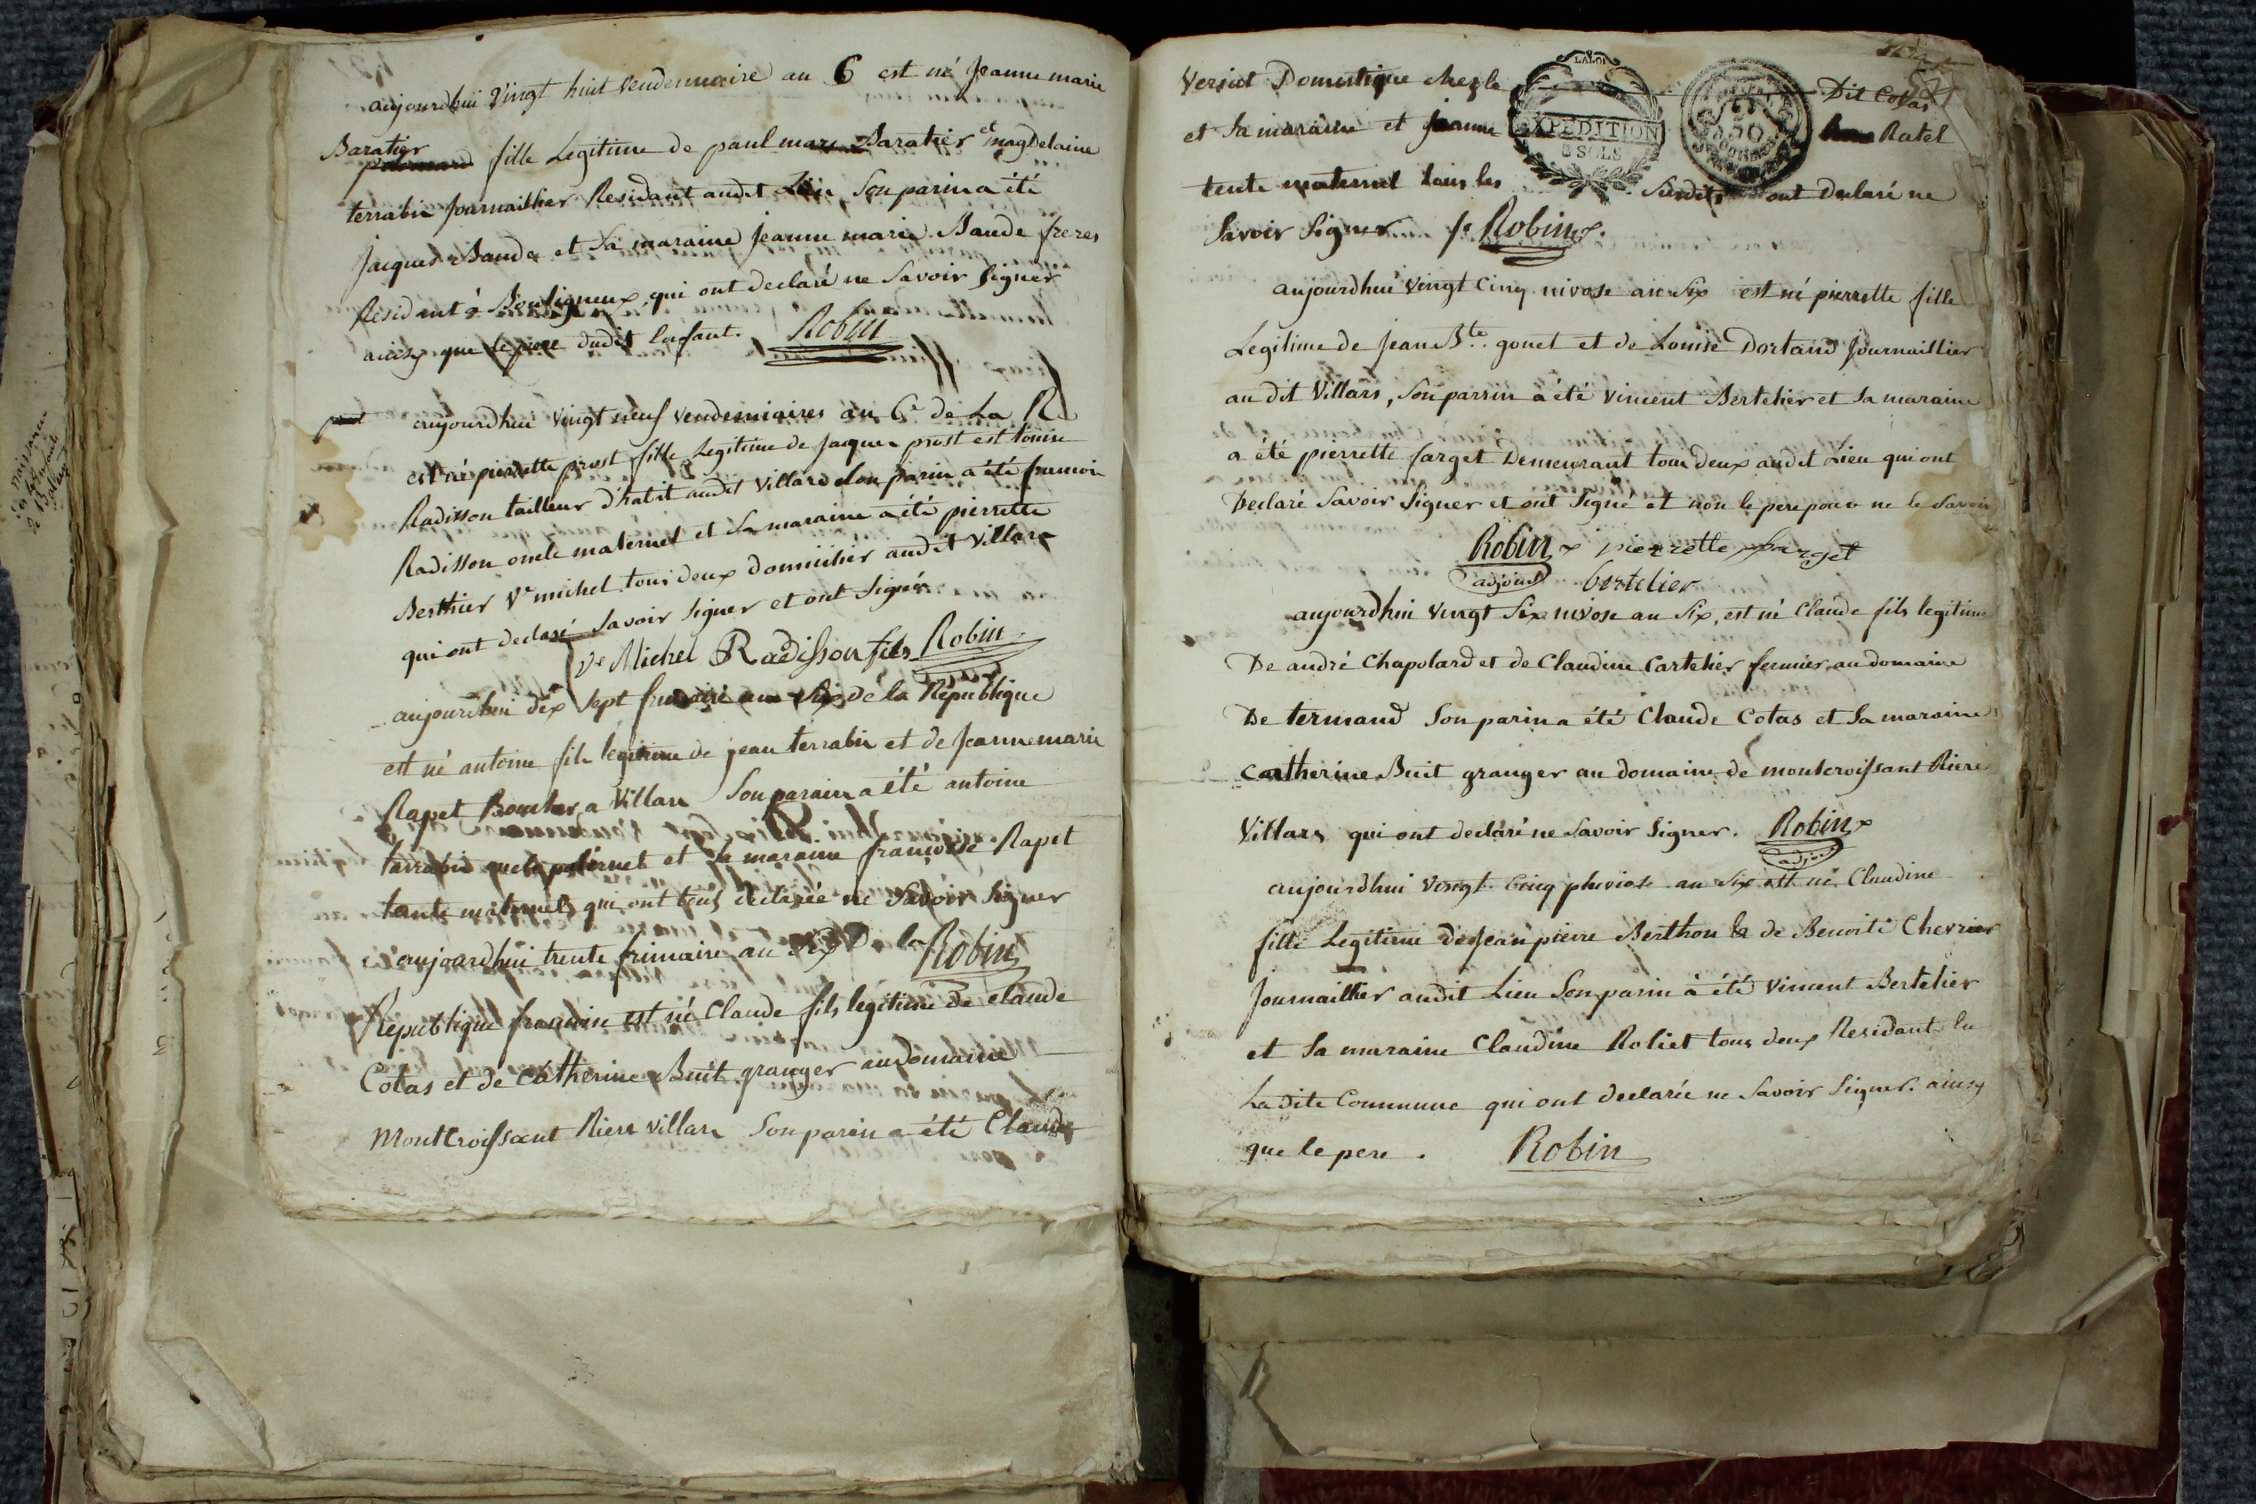 aujourdhui vingt huit vendemiaire an 6 est né Jeanne marie
Baratier
fille Legitime de paul marc Baratier et magdelaine
terrabin Journailher Residant audit Lieu Son parin a été
Jacques Baude et Sa maraine Jeanne marie Baude freres
Resident a Bouligneux, qui ont declaré ne Savoir Signer
ainsy que le pere dudit Enfant. Robin
prost aujourdhui vingt neuf vendemiaires an 6e de La R
est né pierrette prost fille Legitime de Jaques prost est Louise
Radisson tailleur d'habit audit villard Son parin a été francois
Radisson oncle maternel et Sa maraine a été pierrette
Berthier Ve michel tous deux domicilier audit villars
qui ont declaré Savoir Signer et ont Signés
Ve Michel Radisson fils Robin
aujourdhui dix Sept frimaire an Six de la Republique
est né antoine fils legitime de jean terrabin et de Jeanne marie
Rapet Boucher a Villars Son parain a été antoine
terrabin oncle paternel et Sa maraine francoise Rapet
tante maternel qui ont tous declarée ne Savoir Signer
aujourdhui trente frimaire an Six D la Robin
Republique francoise est né Claude fils legitime de claude
Colas et de Catherine Buit granger au domaine
Montcroissant Riere villars Son parin a été Claude
Verjat Domestique chez le Dit Colas
et Sa maraine et Jeanne Ratel
LA LOI
EXPEDITION
5 SOLS
50
tente maternel tous les Susdits ont declaré ne
Savoir Signer Robin
aujourdhui vingt Cinq nivose an Six est né pierrette fille
Legitime de Jean Bte gonet et de Louise Dortand Journaillier
au dit Villars, Son parrin a été vincent Bertelier et Sa maraine
a été pierrette farget Demeurant tous deux audit Lieu qui ont
Declaré Savoir Signer et ont Signé et non le pere pour ne le Savoir
Robin pierrette farget
adjoint bertelier
aujourdhui vingt Six nivose an Six, est né Claude fils legitime
De andré Chapolard et de Claudine Cartelier fermier au domaine
De termand Son parin a été Claude Colas et Sa maraine
Catherine Buit granger au domaine de montcroissant Riere
Villars qui ont declaré ne Savoir Signer. Robin
adjoint
aujourdhui vingt Cinq pluviose an Six est né Claudine
fille Legitime de Jean pierre Berthon & de Benoite Chevrier
Journaillier audit Lieu Son parin a été Vincent Bertelier
et Sa maraine Claudine Roliet tous deux Residant En
La dite Commune qui ont declarée ne Savoir Signer. ainsy
que le pere. Robin